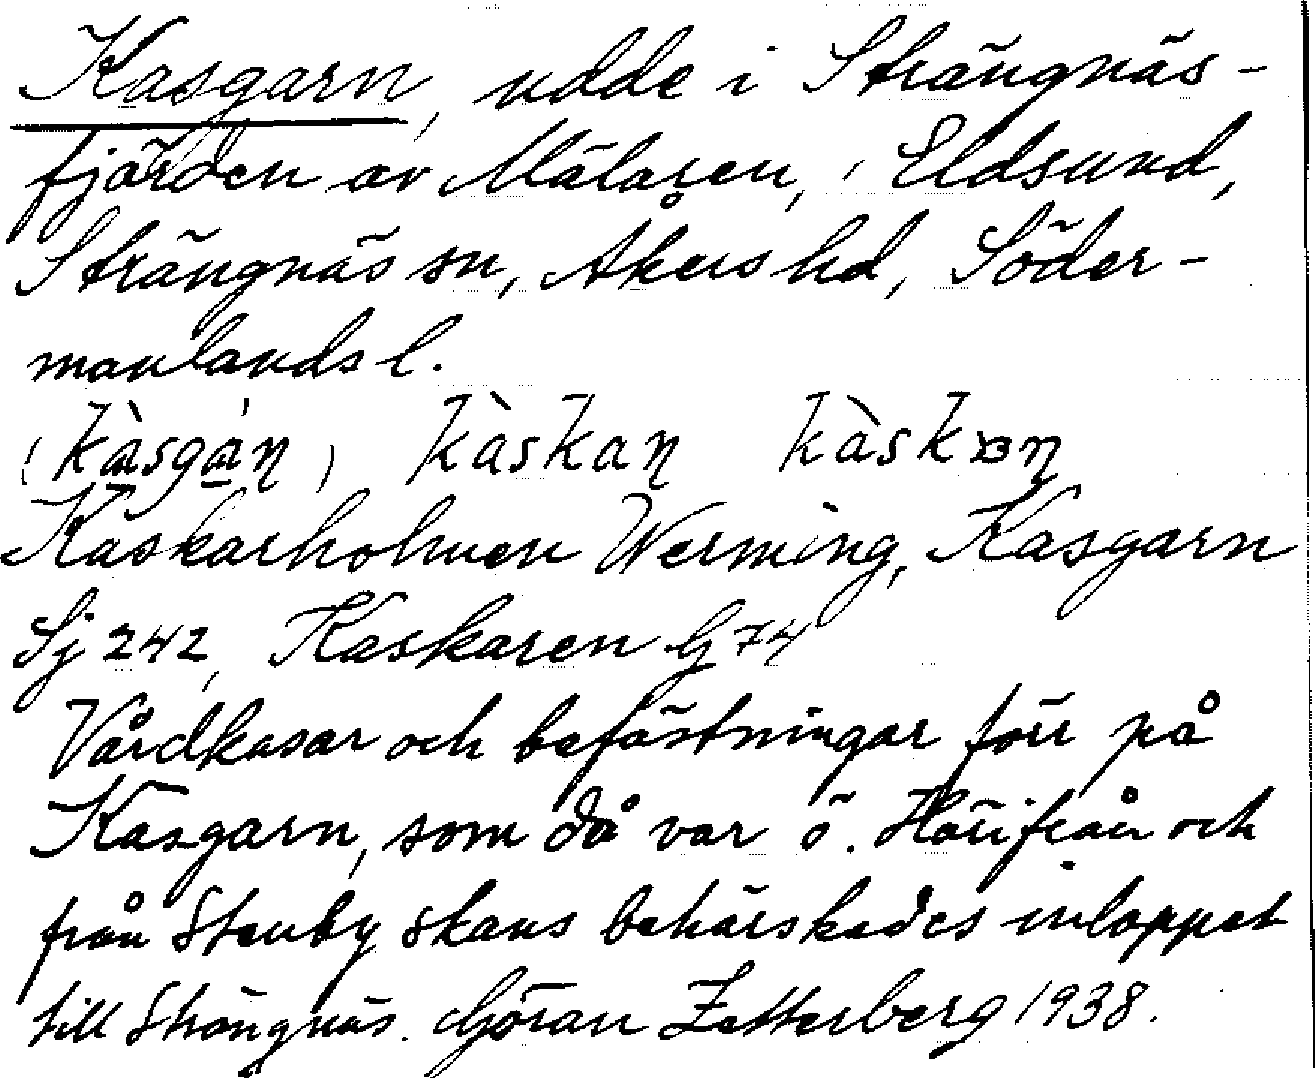 Kasgarn, udde i Strängnäs-
fjärden av Mälaren, Eldsund,
Strängnäs sn, Åkers hd, Söder-
manlands l.
(kàsgàn) kàskan kàskɔn
Kaskarholmen Werming, Kasgarn
Sj 242, Kaskaren G 74
Vårdkasar och befästningar förr på
Kasgarn, som då var ö. Härifrån och
från Stenby skans behärskades inloppet
till Strängnäs. Göran Zetterberg 1938.